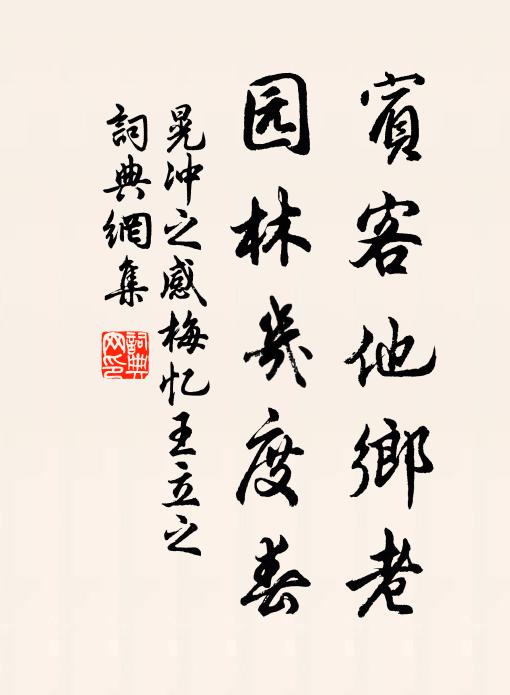 賓客他鄉老
园林幾度春
晁冲之感梅忆王立之
詞典網集
詞典网印